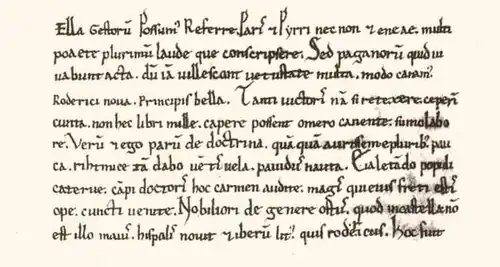 Ella gestorū possumꝰ referre. Parıſ ⁊ pyrri nec non ⁊ eneae. multi
poaete plurimū laude que conscripsere. Sed paganorū quid iu
uabunt acta. dū iā uillescant uetustate multa. modo canamꝰ
Roderici noua. principis bella. Tanti uictorıſ nā si retexere ceperī
cunta. non hec libri mille. capere possent omero canente. sumo labo
re. Verū ⁊ ego parū de doctrina. quā quā aurissem e pluribꝰ. pau
ca. rihtmice tā dabo uētıſ uela. pauidꝰ nauta. Eia letādo populi
caterue. cāpi doctorıſ hoc carmen audite. magıſ qui eiuıſ freti estıſ
ope. cuncti uenite. Nobiliori de genere ortꝰ. quod in castella nō
est illo maiꝰ. hispalıſ nouit ⁊ iberū litꝰ. quis rodericus. Hoc fuit